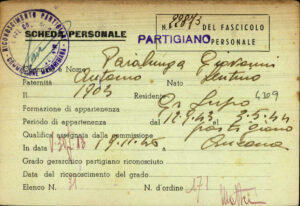 SCHEDA PERSONALE
N. 22873 DEL FASCICOLO
PERSONALE
PARTIGIANO
Cognome e Nome Giovanni
Paternità Antonio Nato
1903 Residente
Formazione di appartenenza Gr. Lupo 4209
Periodo di appartenenza dal 12.9.43 al 3.5.44
Qualifica assegnata dalla commissione partigiano
In data 19.11.46 Ancona
Grado gerarchico partigiano riconosciuto
Data del riconoscimento del grado
Elenco N. 31 N. d'ordine 171